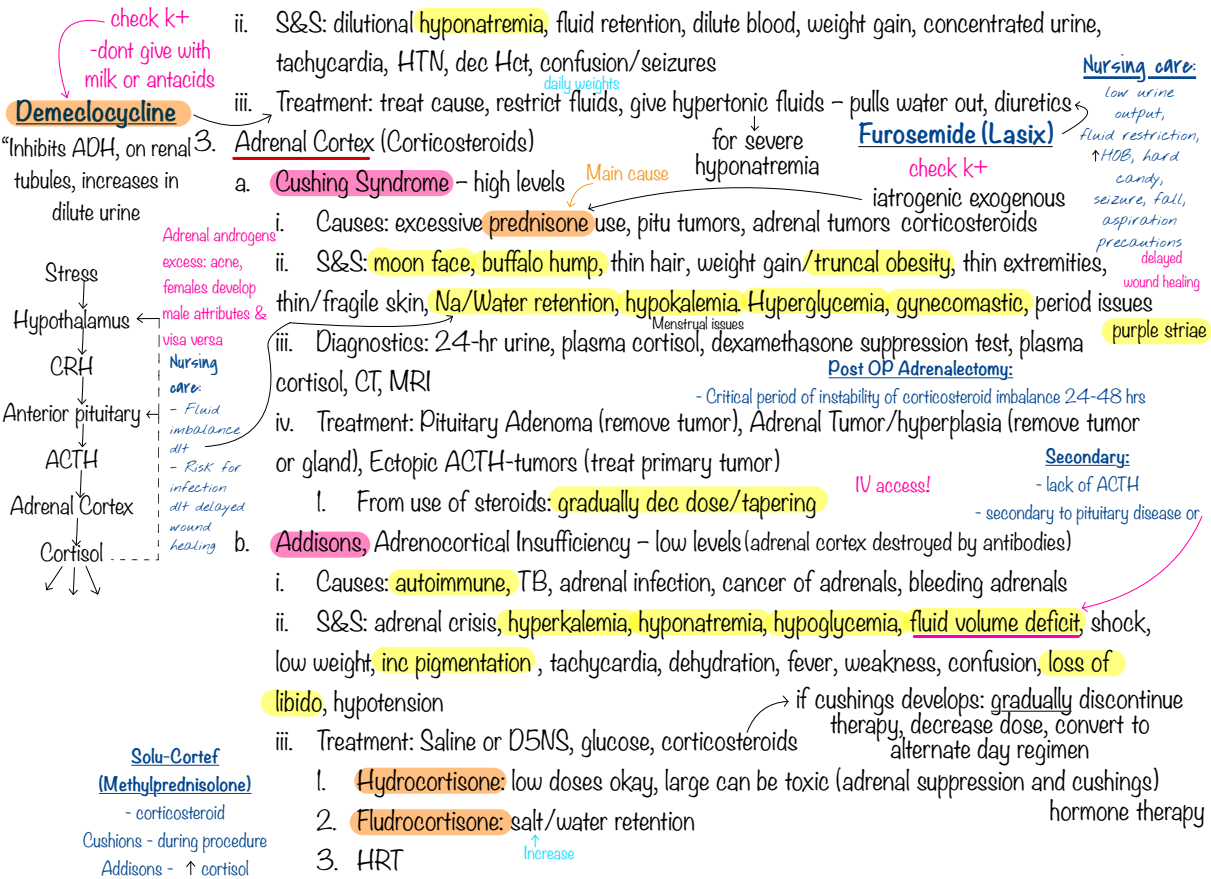 check k+
-dont give with
milk or antacids
Demeclocycline
"Inhibits ADH, on renal
tubules, increases in
dilute urine
ii. S&S: dilutional hyponatremia, fluid retention, dilute blood, weight gain, concentrated urine,
tachycardia, HTN, dec Hct, confusion/seizures
daily weights
iii. Treatment: treat cause, restrict fluids, give hypertonic fluids – pulls water out, diuretics
for severe
hyponatremia
Furosemide (Lasix)
check k+
Nursing care:
low urine
output,
fluid restriction,
↑HOB, hard
candy,
seizure, fall,
aspiration
precautions
delayed
wound healing
3. Adrenal Cortex (Corticosteroids)
a. Cushing Syndrome – high levels
Main cause
iatrogenic exogenous
corticosteroids
i. Causes: excessive prednisone use, pitu tumors, adrenal tumors
ii. S&S: moon face, buffalo hump, thin hair, weight gain/truncal obesity, thin extremities,
thin/fragile skin, Na/Water retention, hypokalemia. Hyperglycemia, gynecomastic, period issues
Menstrual issues
purple striae
iii. Diagnostics: 24-hr urine, plasma cortisol, dexamethasone suppression test, plasma
cortisol, CT, MRI
Post OP Adrenalectomy:
- Critical period of instability of corticosteroid imbalance 24-48 hrs
iv. Treatment: Pituitary Adenoma (remove tumor), Adrenal Tumor/hyperplasia (remove tumor
or gland), Ectopic ACTH-tumors (treat primary tumor)
1. From use of steroids: gradually dec dose/tapering
IV access!
Secondary:
- lack of ACTH
- secondary to pituitary disease or
Adrenal androgens
excess: acne,
females develop
male attributes &
visa versa
Nursing
care:
- Fluid
imbalance
d/t
- Risk for
infection
d/t delayed
wound
healing
Stress
Hypothalamus
CRH
Anterior pituitary
ACTH
Adrenal Cortex
Cortisol
b. Addisons, Adrenocortical Insufficiency – low levels (adrenal cortex destroyed by antibodies)
i. Causes: autoimmune, TB, adrenal infection, cancer of adrenals, bleeding adrenals
ii. S&S: adrenal crisis, hyperkalemia, hyponatremia, hypoglycemia, fluid volume deficit, shock,
low weight, inc pigmentation , tachycardia, dehydration, fever, weakness, confusion, loss of
libido, hypotension
if cushings develops: gradually discontinue
therapy, decrease dose, convert to
alternate day regimen
iii. Treatment: Saline or D5NS, glucose, corticosteroids
1. Hydrocortisone: low doses okay, large can be toxic (adrenal suppression and cushings)
hormone therapy
2. Fludrocortisone: salt/water retention
↑
Increase
3. HRT
Solu-Cortef
(Methylprednisolone)
- corticosteroid
Cushions - during procedure
Addisons - ↑ cortisol